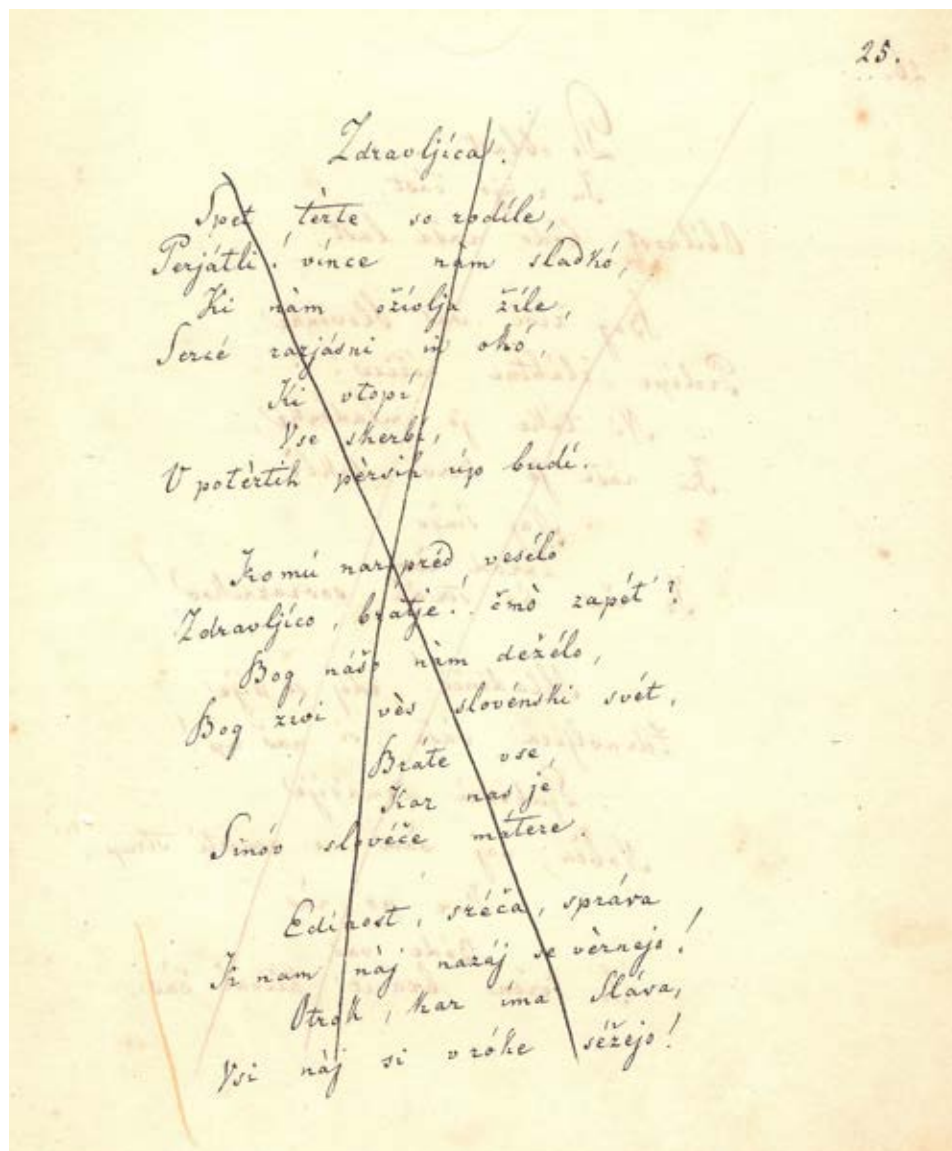 25.
Zdravljíca.
Spet tèrte so rodíle,
Perjátli! vínce nàm sladkó,
Ki nàm ožívlja žíle,
Sercé razjásni in okó,
Ki vtopí
Vse skerbí,
V potèrtih pèrsih úp budí.
Komú narpréd vesélo
Zdravljíco, brátje! čmò zapét'?
Bog nášo nàm dežélo,
Bog žívi vès slovénski svét,
Bráte vse,
Kar nas je
Sinóv slovéče mátere.
Edínost, sréča, správa
K nam nàj nazáj se vèrnejo!
Otrók, kar íma Sláva,
Vsi nàj si v róke séžejo!